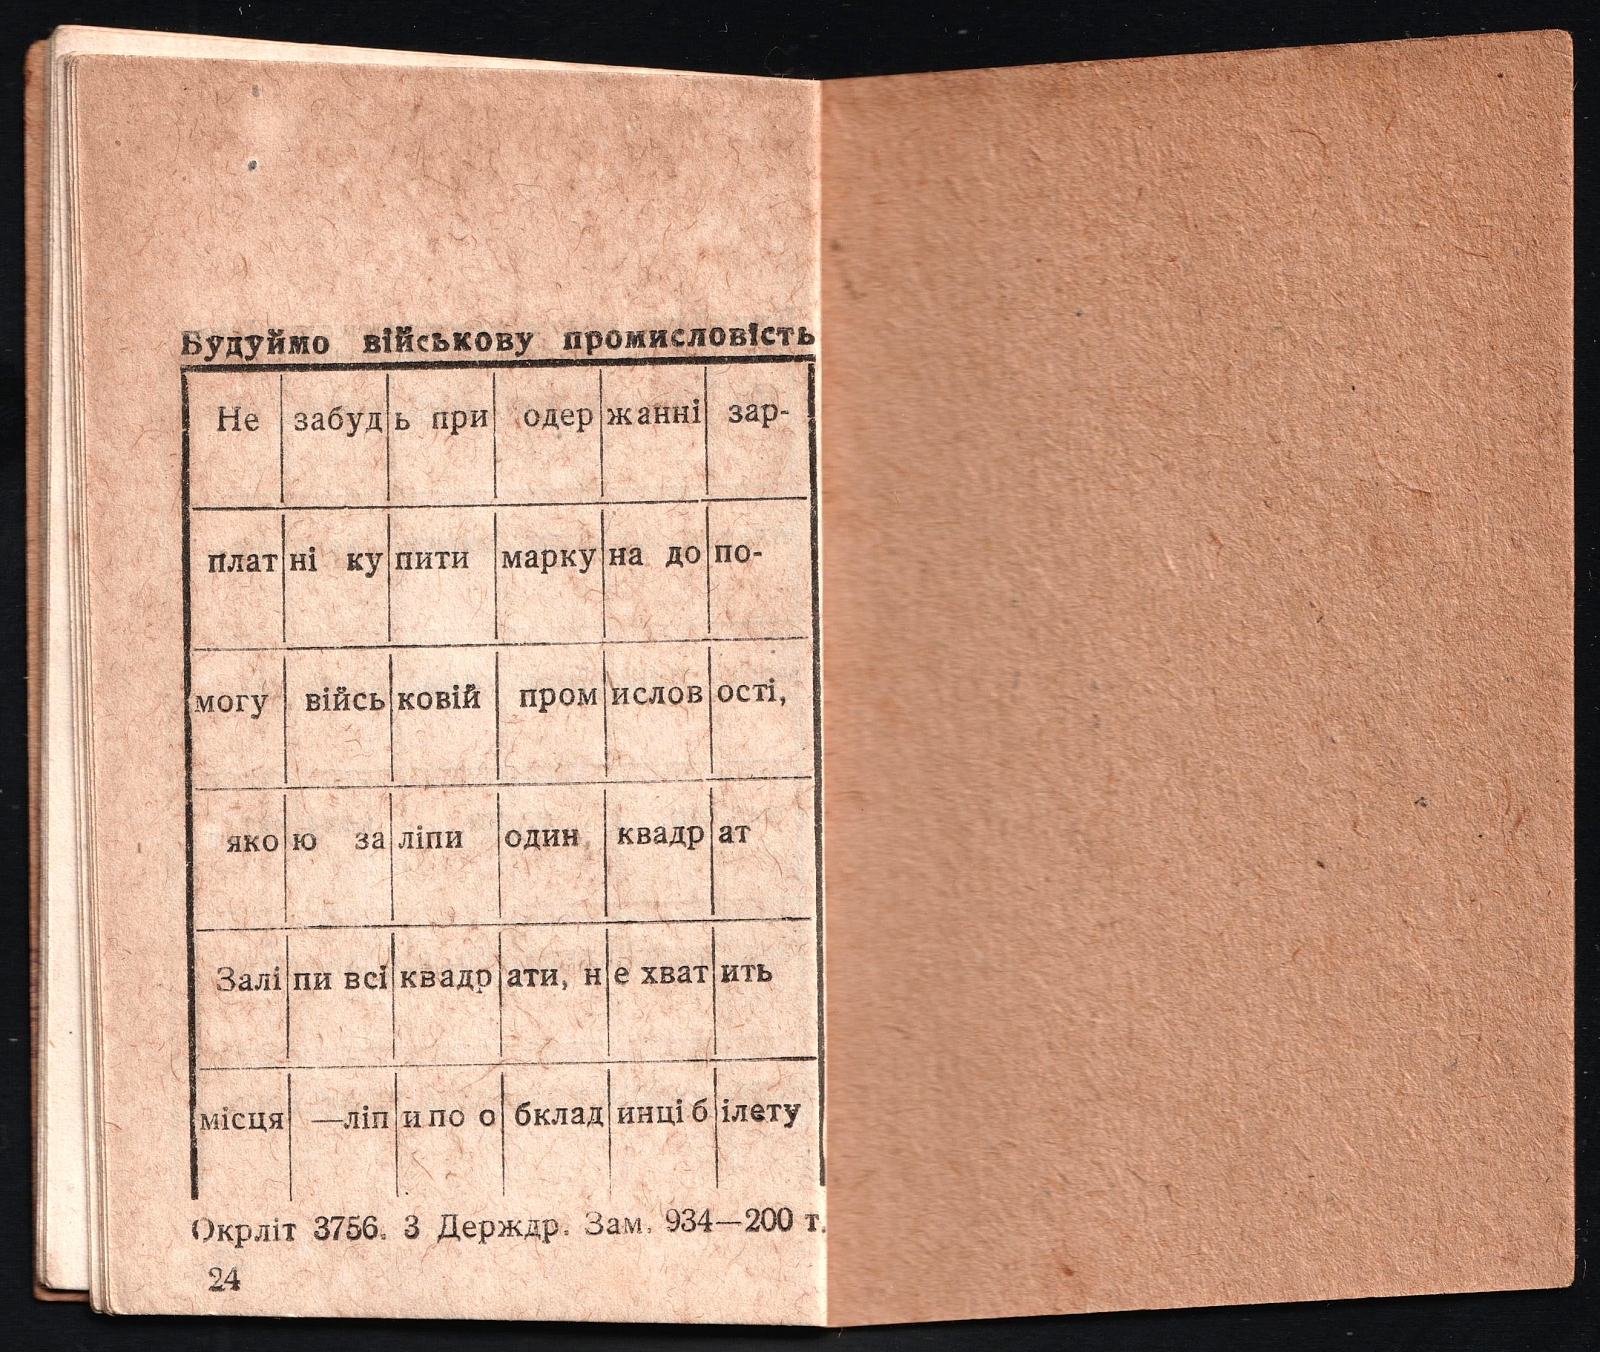 Будуймо військову промисловість
Не забудь при одержанні зар-
платні купити марку на допо-
могу військовій промисловості,
якою заліпи один квадрат
Заліпи всі квадрати, не хватить
місця —ліпи по обкладинці білету
Окрліт 3756. 3 Держдр. Зам. 934—200 т.
24